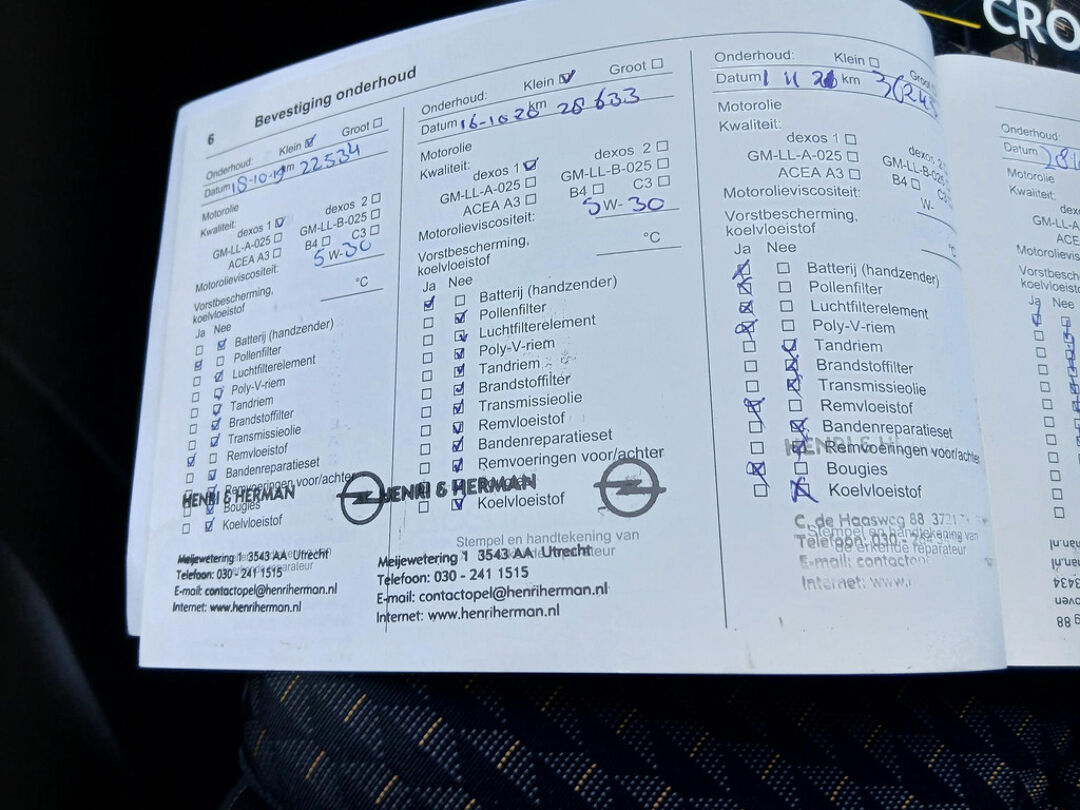 CRO
6 Bevestiging onderhoud
Onderhoud: Klein Groot
Datum 18-10-19 km 22534
Motorolie
Kwaliteit: dexos 1 dexos 2
GM-LL-A-025 GM-LL-B-025
ACEA A3 B4 C3
Motorolieviscositeit: 5 W-30
Vorstbescherming,
koelvloeistof °C
Ja Nee
Batterij (handzender)
Pollenfilter
Luchtfilterelement
Poly-V-riem
Tandriem
Brandstoffilter
Transmissieolie
Remvloeistof
Bandenreparatieset
Remvoeringen voor/achter
HENRI & HERMAN
Bougies
Koelvloeistof
Meijewetering 1 3543 AA Utrecht
Telefoon: 030 - 241 1515
E-mail: contactopel@henriherman.nl
Internet: www.henriherman.nl
Onderhoud: Klein Groot
Datum 16-10-20 km 28633
Motorolie
Kwaliteit: dexos 1 dexos 2
GM-LL-A-025 GM-LL-B-025
ACEA A3 B4 C3
Motorolieviscositeit: 5 W- 30
Vorstbescherming,
koelvloeistof °C
Ja Nee
Batterij (handzender)
Pollenfilter
Luchtfilterelement
Poly-V-riem
Tandriem
Brandstoffilter
Transmissieolie
Remvloeistof
Bandenreparatieset
Remvoeringen voor/achter
HENRI & HERMAN
Koelvloeistof
Stempel en handtekening van
Meijewetering 1 3543 AA Utrecht
Telefoon: 030 - 241 1515
E-mail: contactopel@henriherman.nl
Internet: www.henriherman.nl
Onderhoud: Klein Groot
Datum 1 11 21 km
Motorolie
Kwaliteit: dexos 1 dexos 2
GM-LL-A-025 GM-LL-B-025
ACEA A3 B4 C3
Motorolieviscositeit: W-
Vorstbescherming,
koelvloeistof °C
Ja Nee
Batterij (handzender)
Pollenfilter
Luchtfilterelement
Poly-V-riem
Tandriem
Brandstoffilter
Transmissieolie
Remvloeistof
Bandenreparatieset
HENRI &
Remvoeringen voor/achter
Bougies
Koelvloeistof
C. de Haasweg 88 3721
Stempel en handtekening van
Telefoon: 030 -
de erkende reparateur
E-mail:
Internet: www.
Onderhoud:
Datum
Motorolie
Kwaliteit:
GM-LL-A
ACE
Motorolievis
Vorstbesch
koelvloeist
Ja Nee